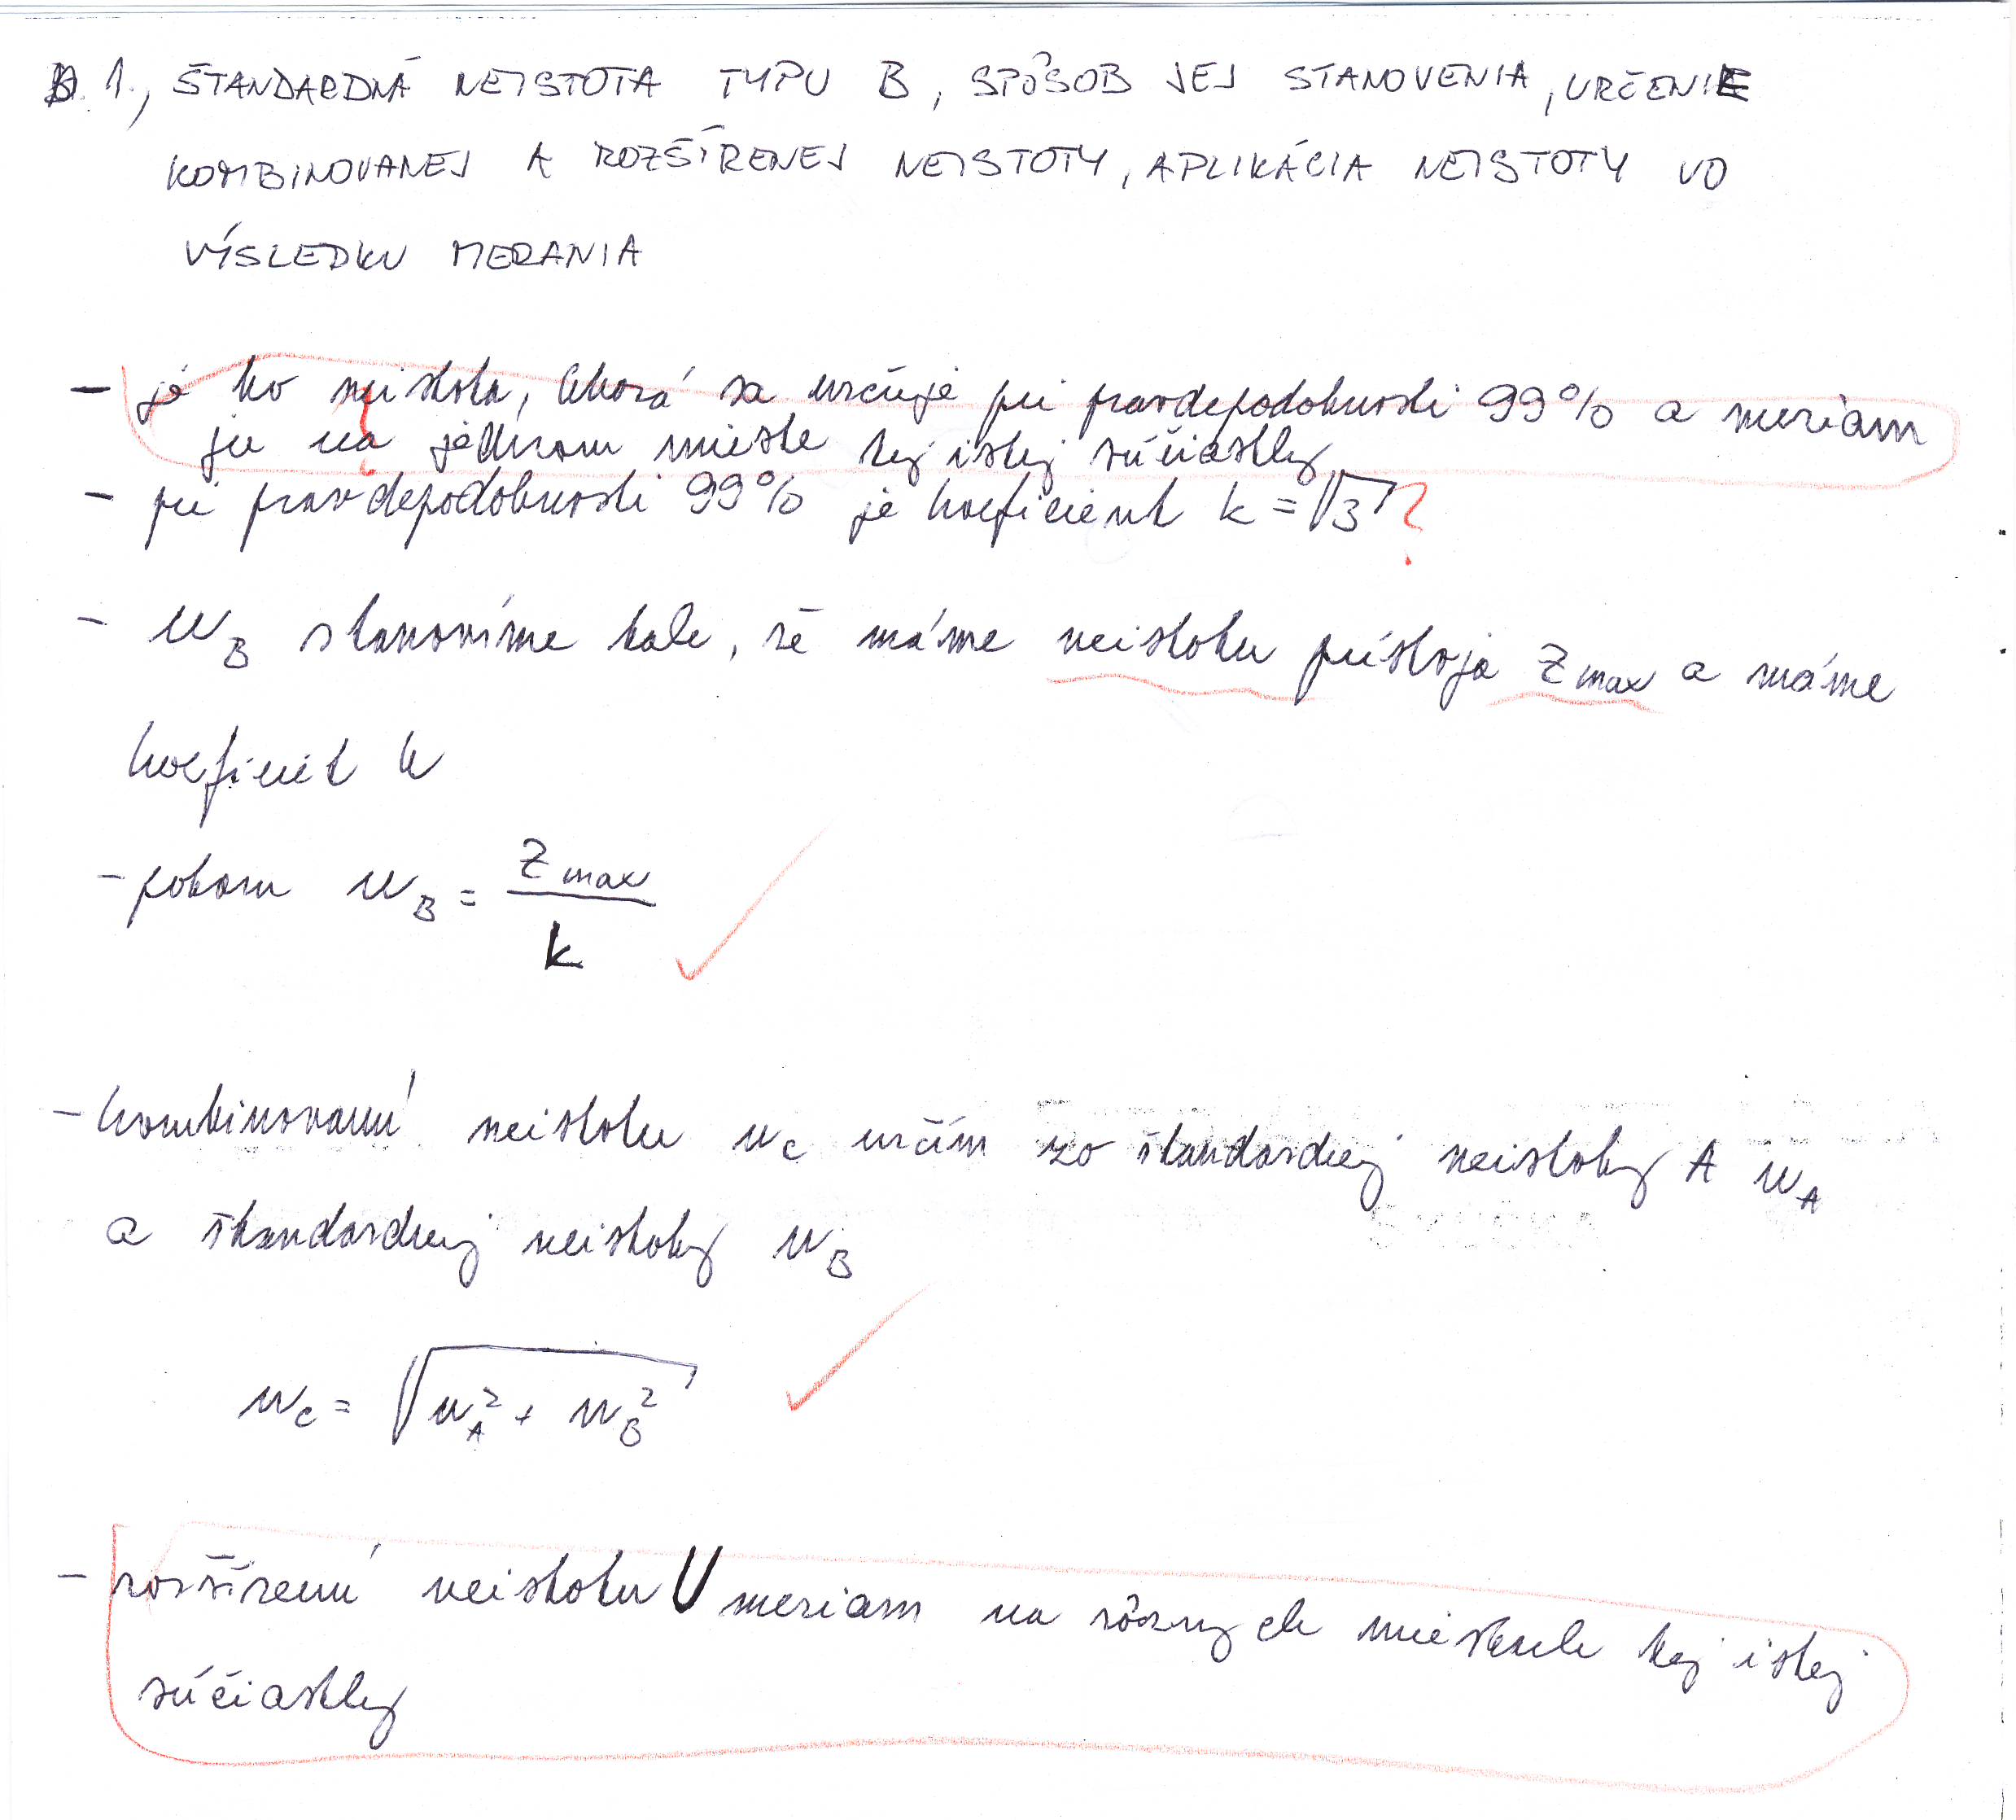 1., ŠTANDARDNÁ NEISTOTA TYPU B, SPÔSOB JEJ STANOVENIA, URČENIE
KOMBINOVANEJ A ROZŠÍRENEJ NEISTOTY, APLIKÁCIA NEISTOTY VO
VÝSLEDKU MERANIA
- je to neistota, ktorá sa určuje pri pravdepodobnosti 99% a meriam
ju na jednom mieste tej istej súčiastky
- pri pravdepodobnosti 99% je koeficient k = √3 ?
- u_B stanovíme tak, že máme neistotu prístroja z_max a máme
koeficient k
- potom u_B = z_max / k
- kombinovanú neistotu u_c určím zo štandardnej neistoty A u_A
a štandardnej neistoty u_B
u_c = √(u_A² + u_B²)
- rozšírenú neistotu U meriam na rôznych miestach tej istej
súčiastky